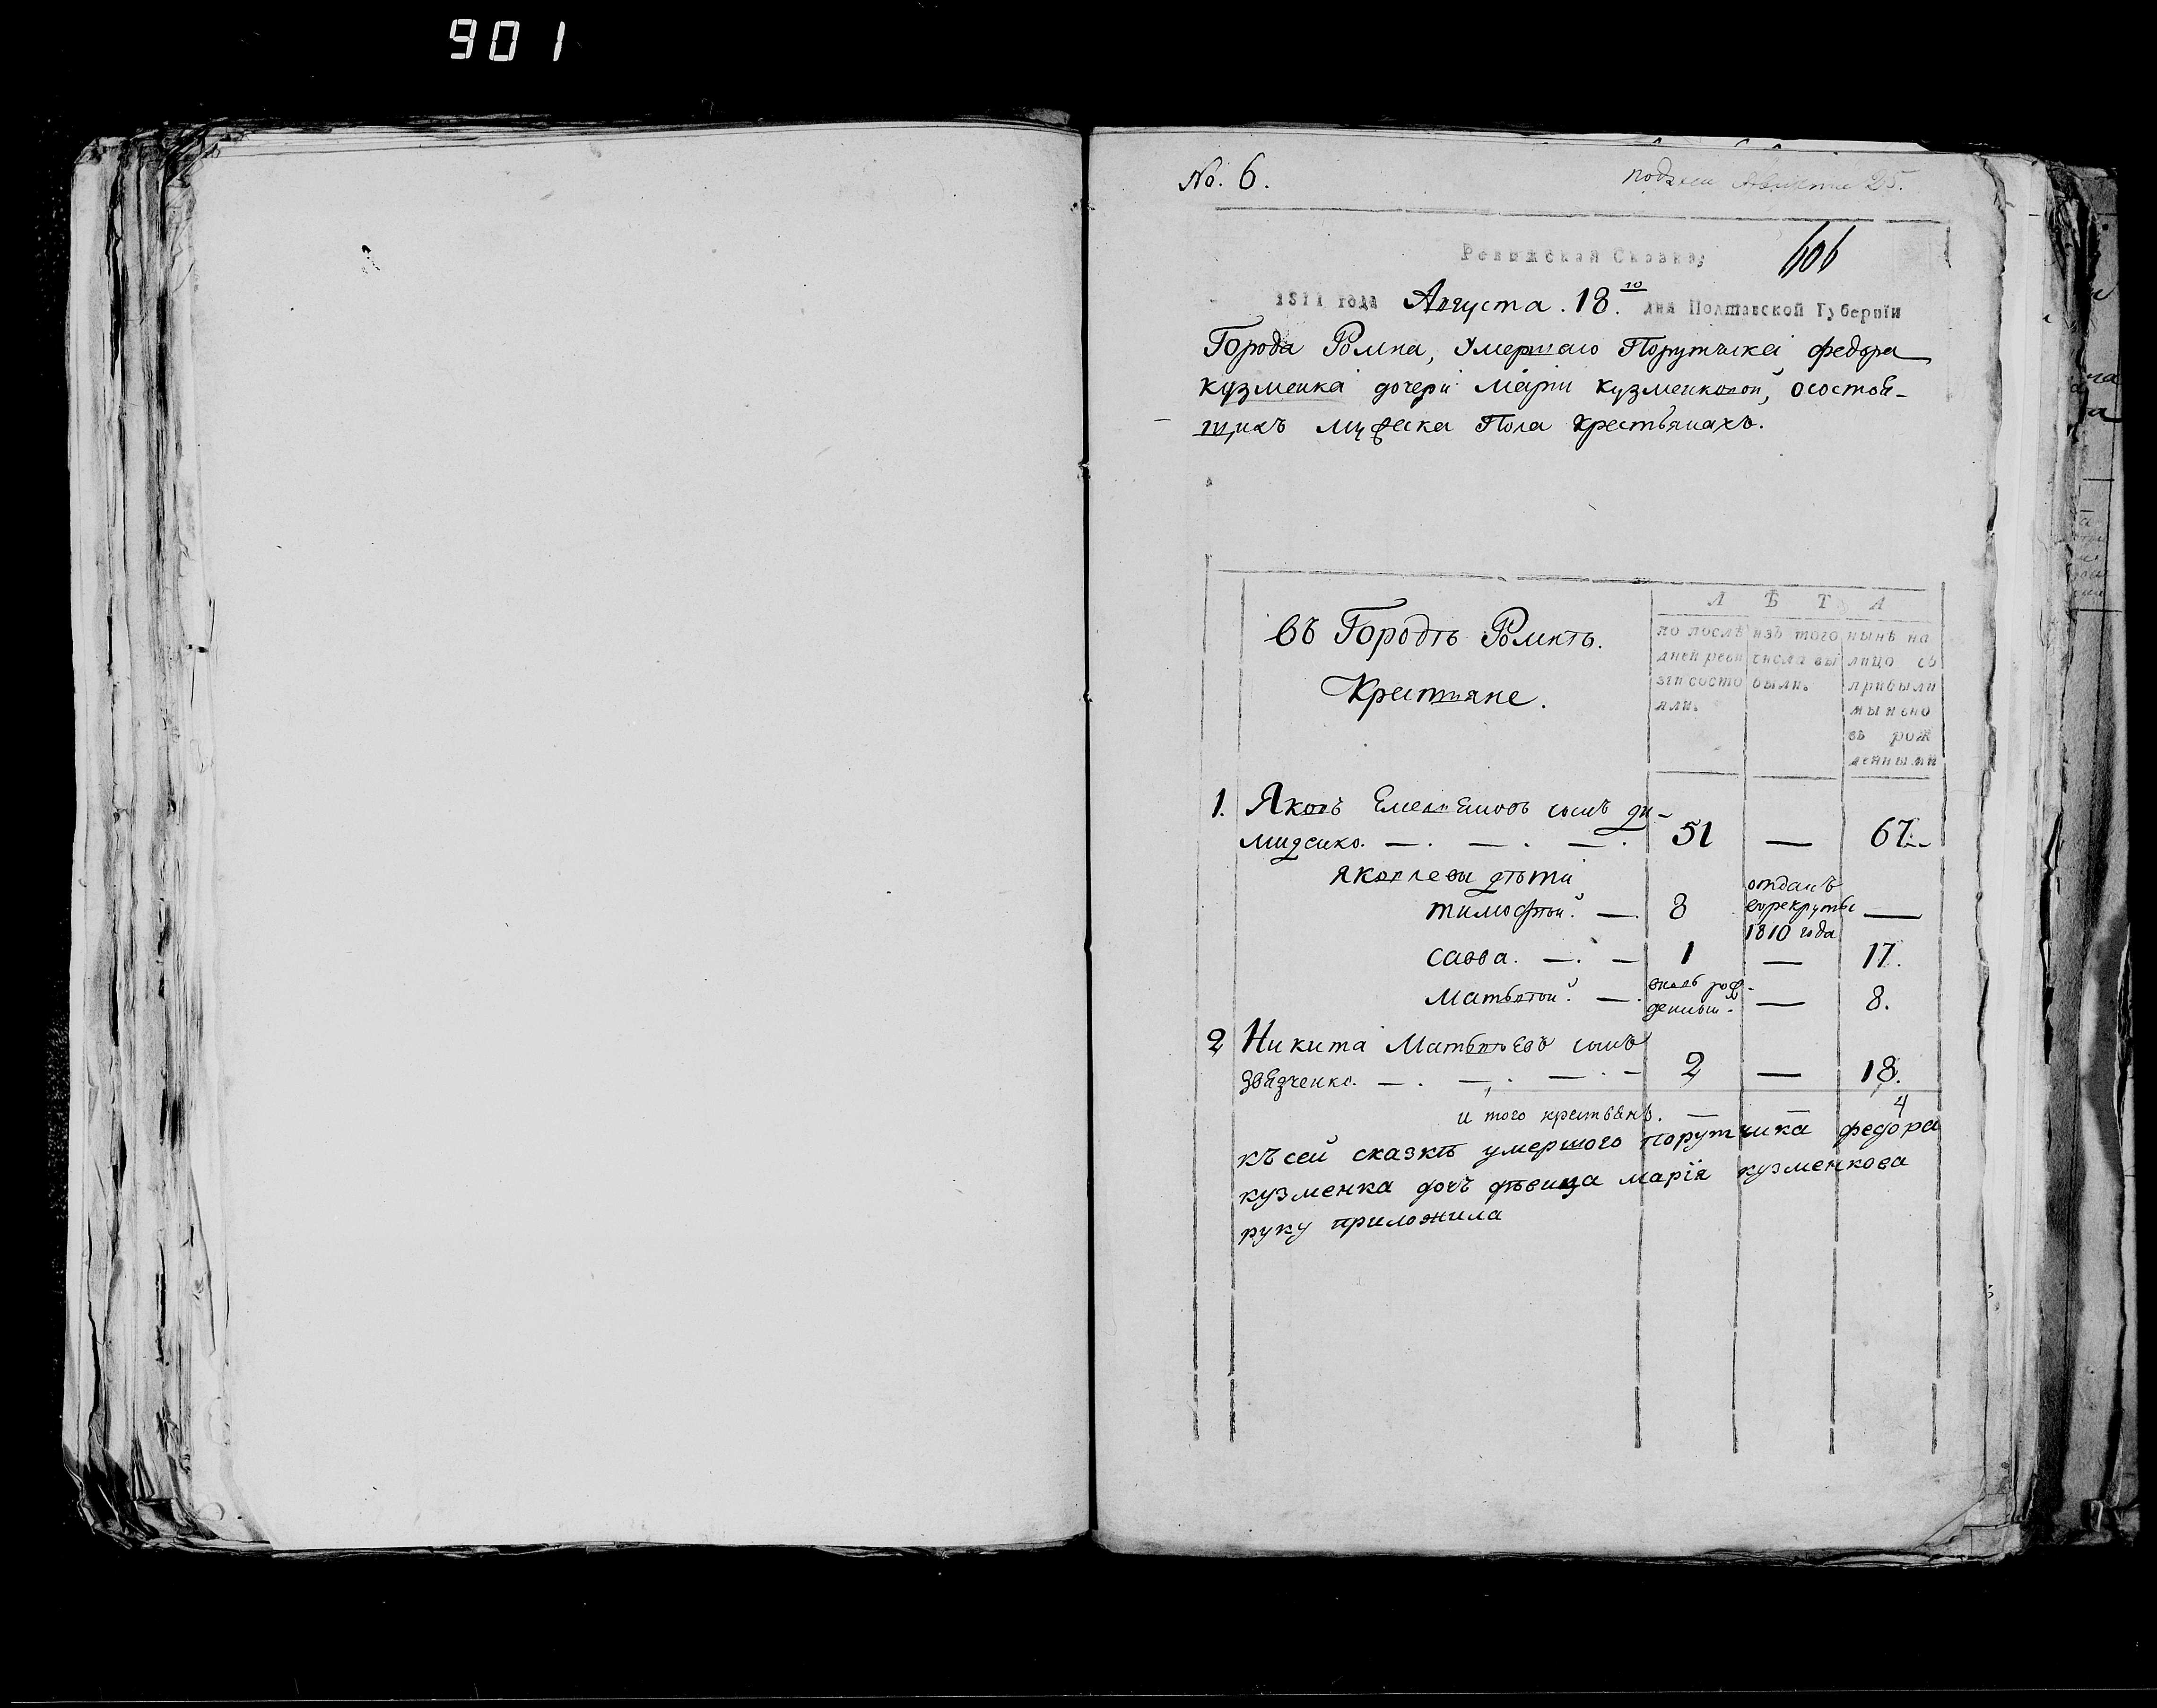 901
No. 6.
подана Августа 25.
Ревижская Сказка;
606
1811 года Августа. 18.го дня Полтавской Губернїи
Города Ромна, Умершаго Порутчика федора
кузменка дочери Маріи кузменковой, осостоя-
щихъ мужеска Пола крестьянахъ.
Въ Городѣ Ромнѣ.
Крестьяне.
Л Ѣ Т А
по послѣ
дней реви
зіи состо
яли.
изъ того
числа вы
были.
нынѣ на
лицо съ
прибыли
ми и вно
въ рож
денными
1. Яковъ Емельяновъ сынъ ди-
миденко. — . — . — . 51 — 67.
яковлевы дѣти
тимофѣй. — 8 отданъ
врекруты —
1810 года
савва. — . — 1 — 17.
Матвѣй. — . вновь рож-
денный. — 8.
2 Никита Матвѣевъ сынъ
звязченко. — . — . — . — 2 — 18.
и того крестьянъ. — — 4
къ сей сказкѣ умершого порутчика федора
кузменка дочъ дѣвица марія кузменкова
руку приложила